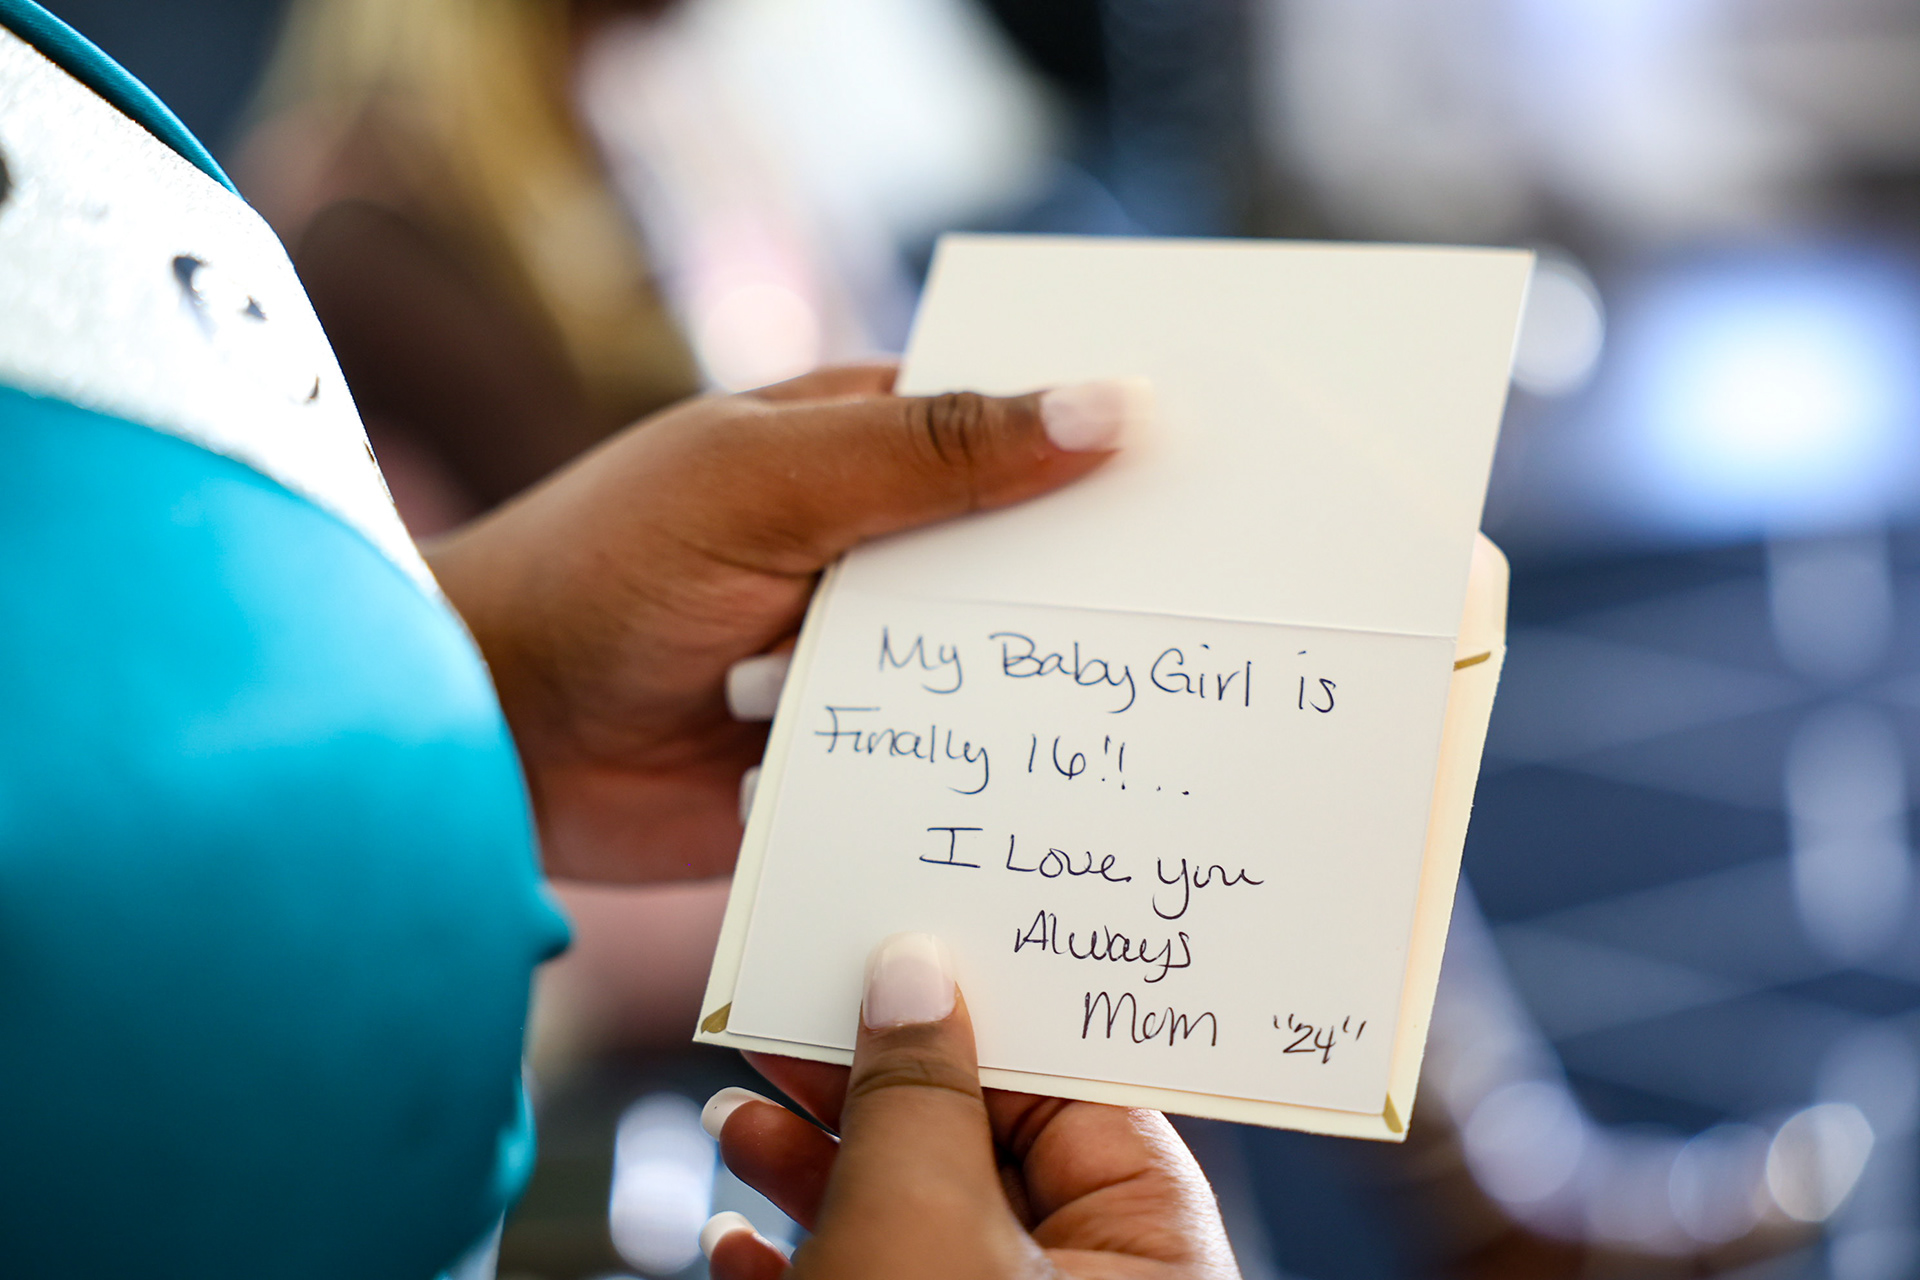 My Baby Girl is
Finally 16!! ..
I Love you
Always
Mom "24"